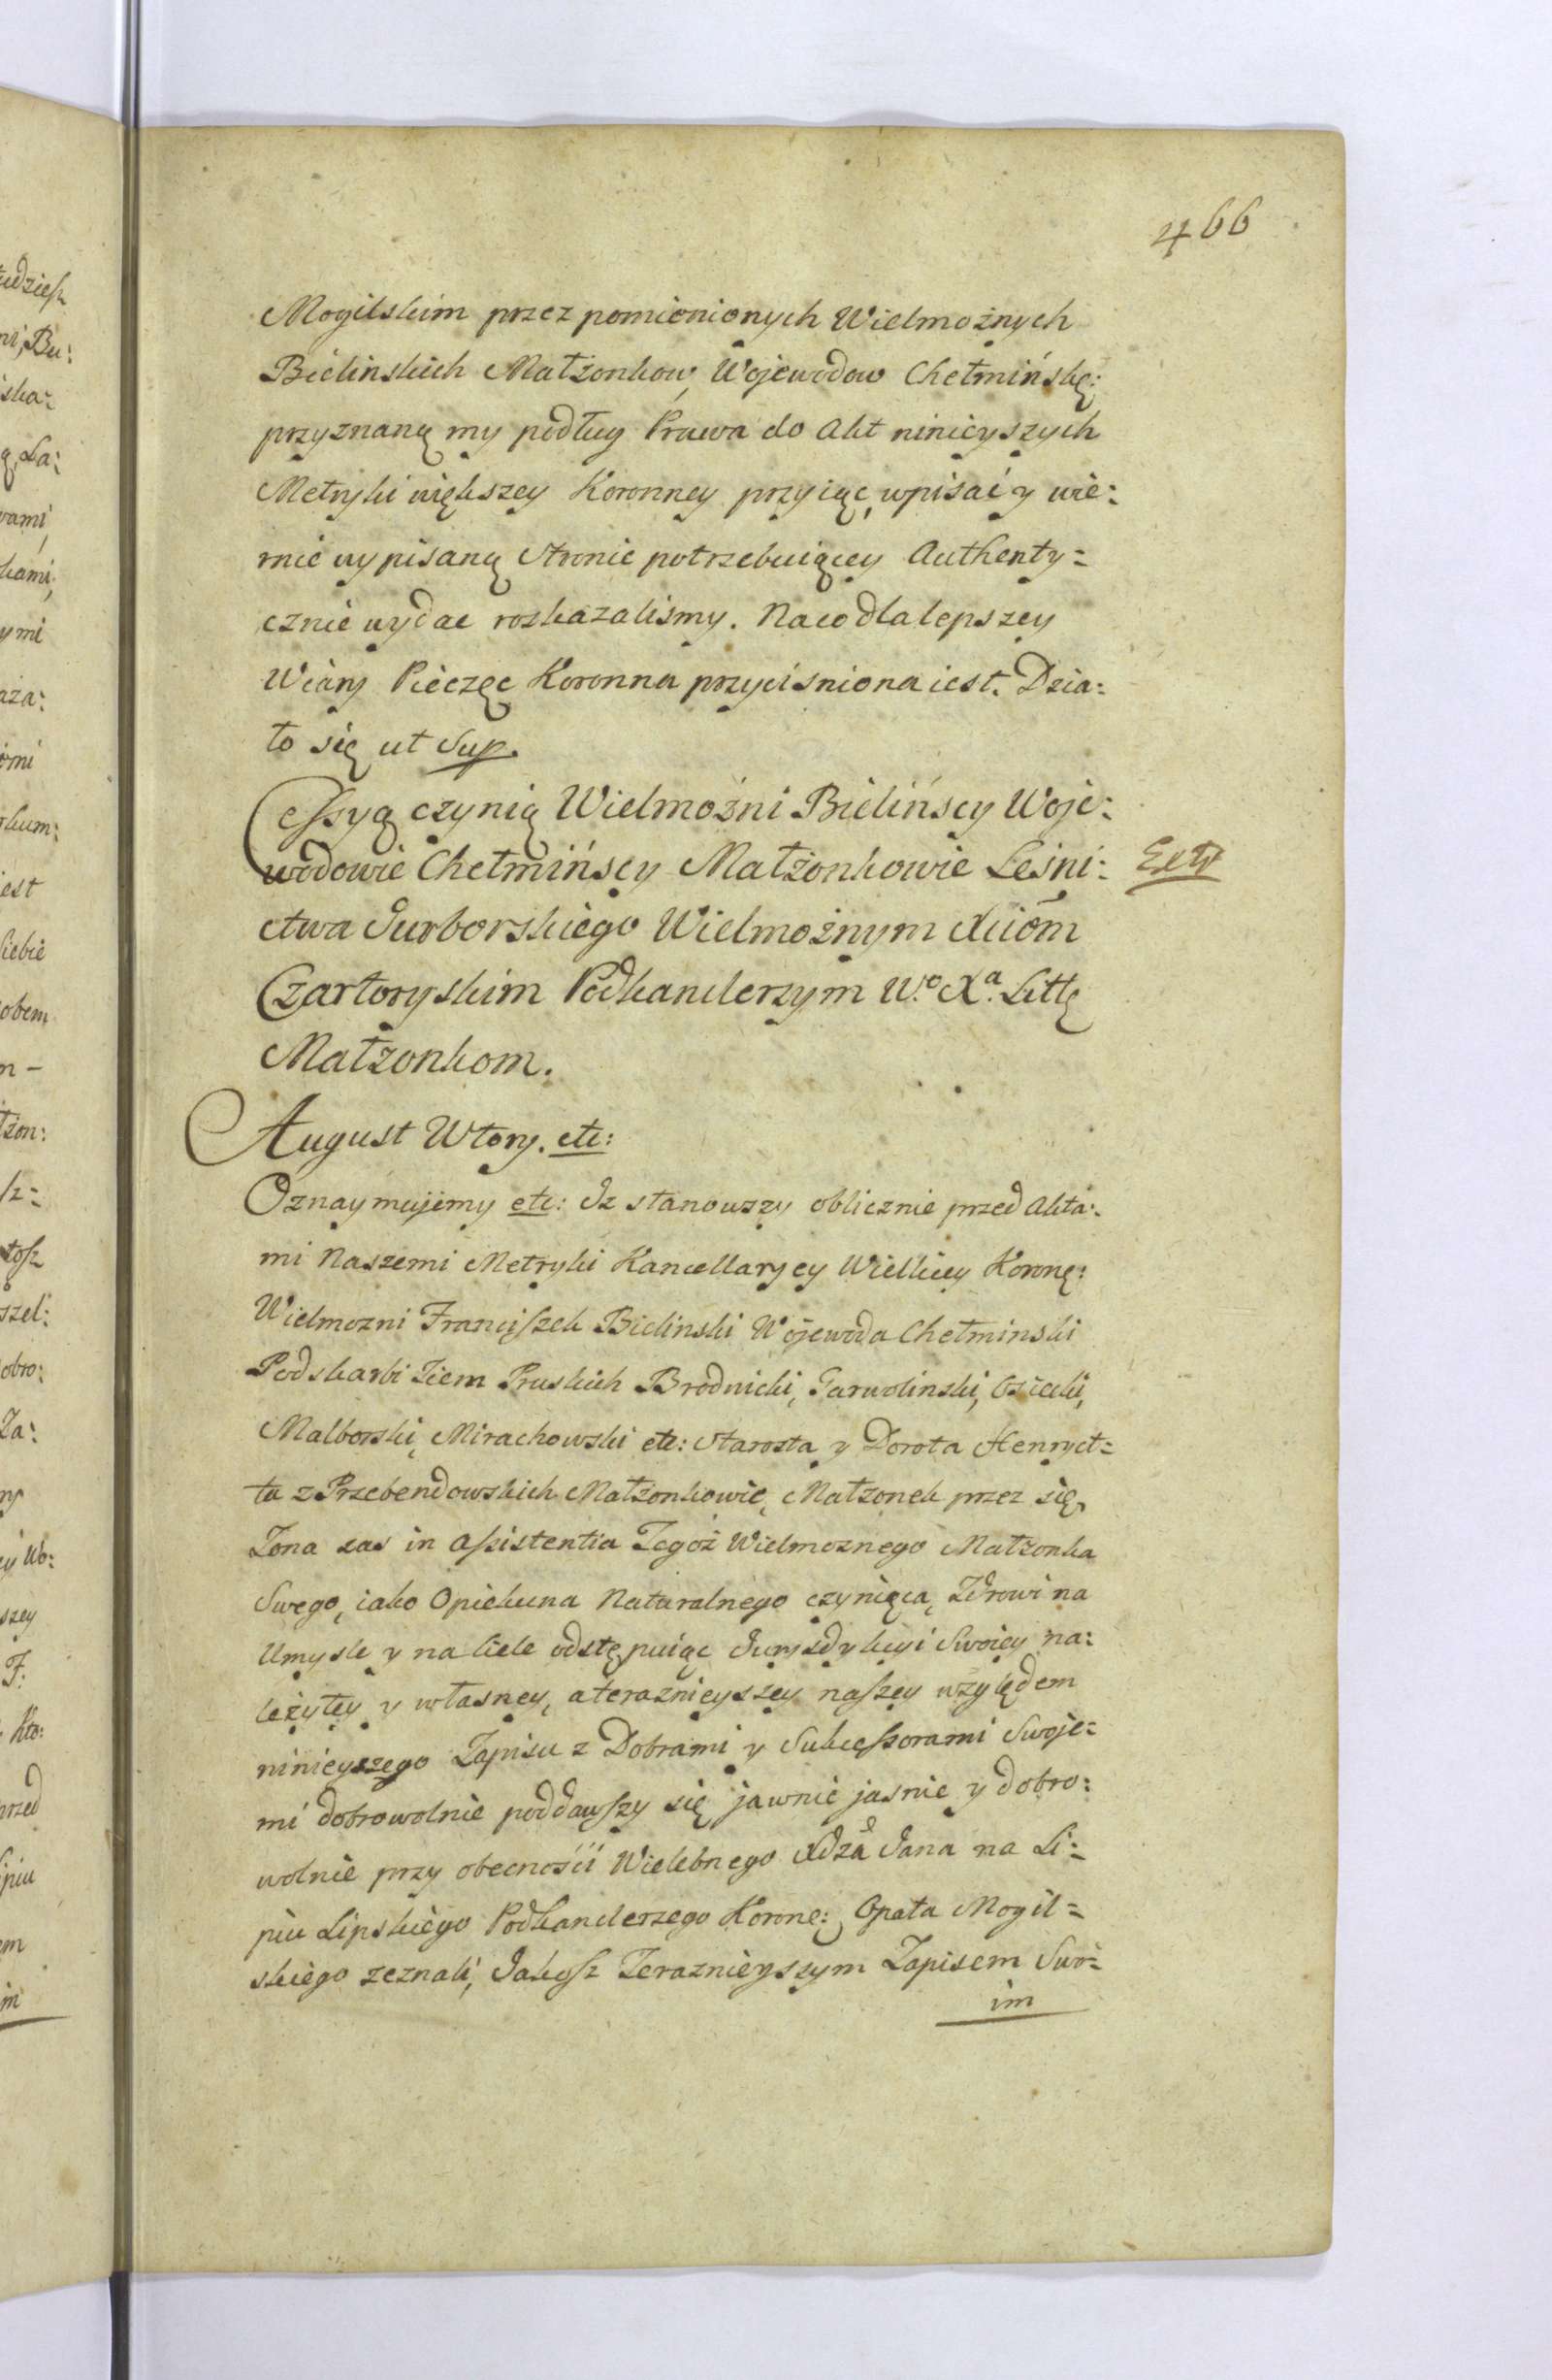 466
Mogilskim przez pomienionych Wielmożnych
Bielinskich Małżonkow, Wojewodow Chełmińskę:
przyznaną my podług Prawa do Akt ninieyszych
Metryki większey Koronney przyiąc, wpisać y wie:
rnie wypisaną Stronie potrzebuiącey Authenty=
cznie wydac rozkazalismy. Na co dla lepszey
Wiary Pieczęc Koronna przycisniona iest. Dzia:
ło się ut Sup.
Cessyą czynią Wielmożni Bielińscy Woje:
wodowie Chełmińscy Małżonkowie Leśni:
Extr
ctwa Jurborskiego Wielmożnym Xciom
Czartoryskim Podkanclerzym W.º Xª. Littę
Małżonkom.
August Wtory. etc:
Oznaymujemy etc: Iz stanowszy oblicznie przed Akta:
mi Naszemi Metryki Kancellaryey Wielkiey Koronę:
Wielmozni Franciszek Bielinski Wojewoda Chełminski
Podskarbi Ziem Pruskich Brodnicki, Garwolinski, Osiecki,
Malborski, Mirachowski etc: Starosta y Dorota Henryet=
ta z Przebendowskich Małżonkowie, Małzonek przez się,
Zona zas in assistentia Tegoż Wielmoznego Małzonka
Swego, iako Opiekuna Naturalnego czyniąca, Zdrowi na
Umysle y na Ciele odstępuiąc Juryzdykcyi Swoiey na:
leżytey y własney, a teraznieyszey naszey względem
ninieyszego Zapisu z Dobrami y Sukcessorami Swoje=
mi dobrowolnie poddawszy się jawnie jasnie y dobro:
wolnie przy obecnosći Wielebnego Xdza Jana na Li:
piu Lipskiego Podkanclerzego Koronę: Opata Mogil=
skiego zeznali, Jakosz Teraznieyszym Zapisem Swo=
im